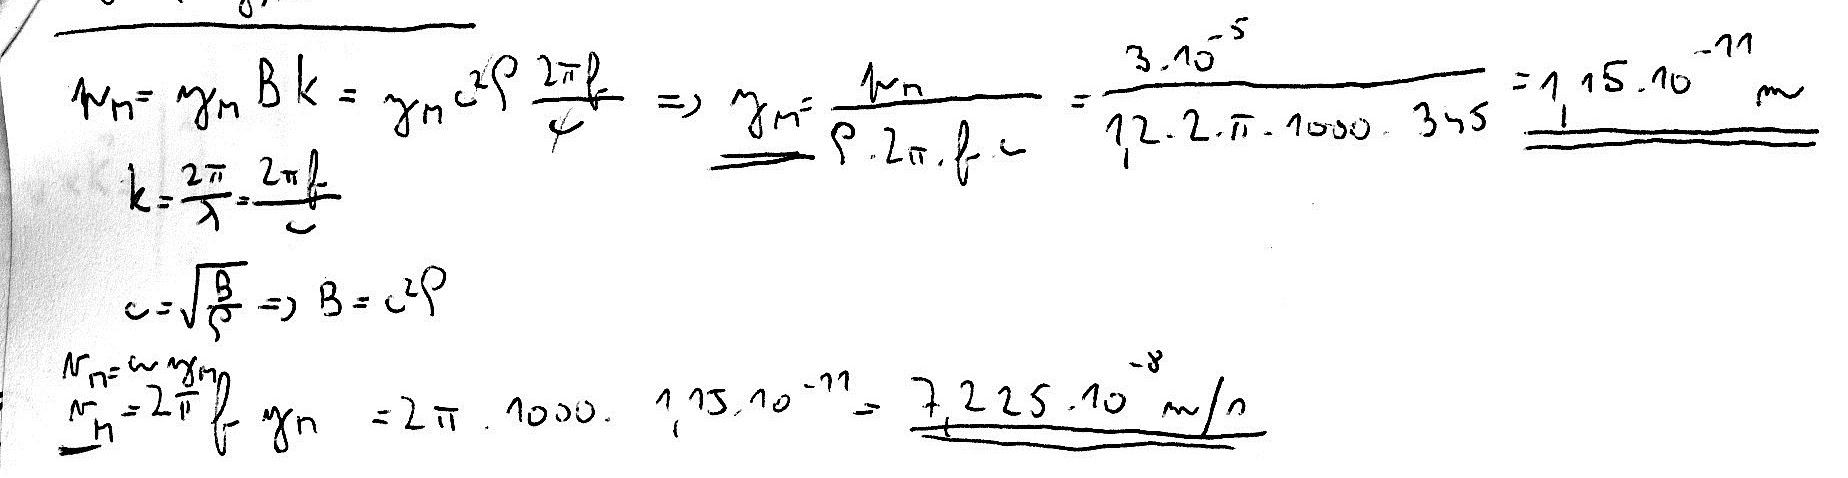 pₘ = yₘ B k = yₘ c²ρ 2πf/c => yₘ = pₘ/(ρ·2π·f·c) = 3·10⁻⁵/(1,2·2·π·1000·345) = 1,15·10⁻¹¹ m
k = 2π/λ = 2πf/c
c = √(B/ρ) => B = c²ρ
vₘ = ω yₘ
vₘ = 2π f yₘ = 2π · 1000 · 1,15·10⁻¹¹ = 7,225·10⁻⁸ m/s